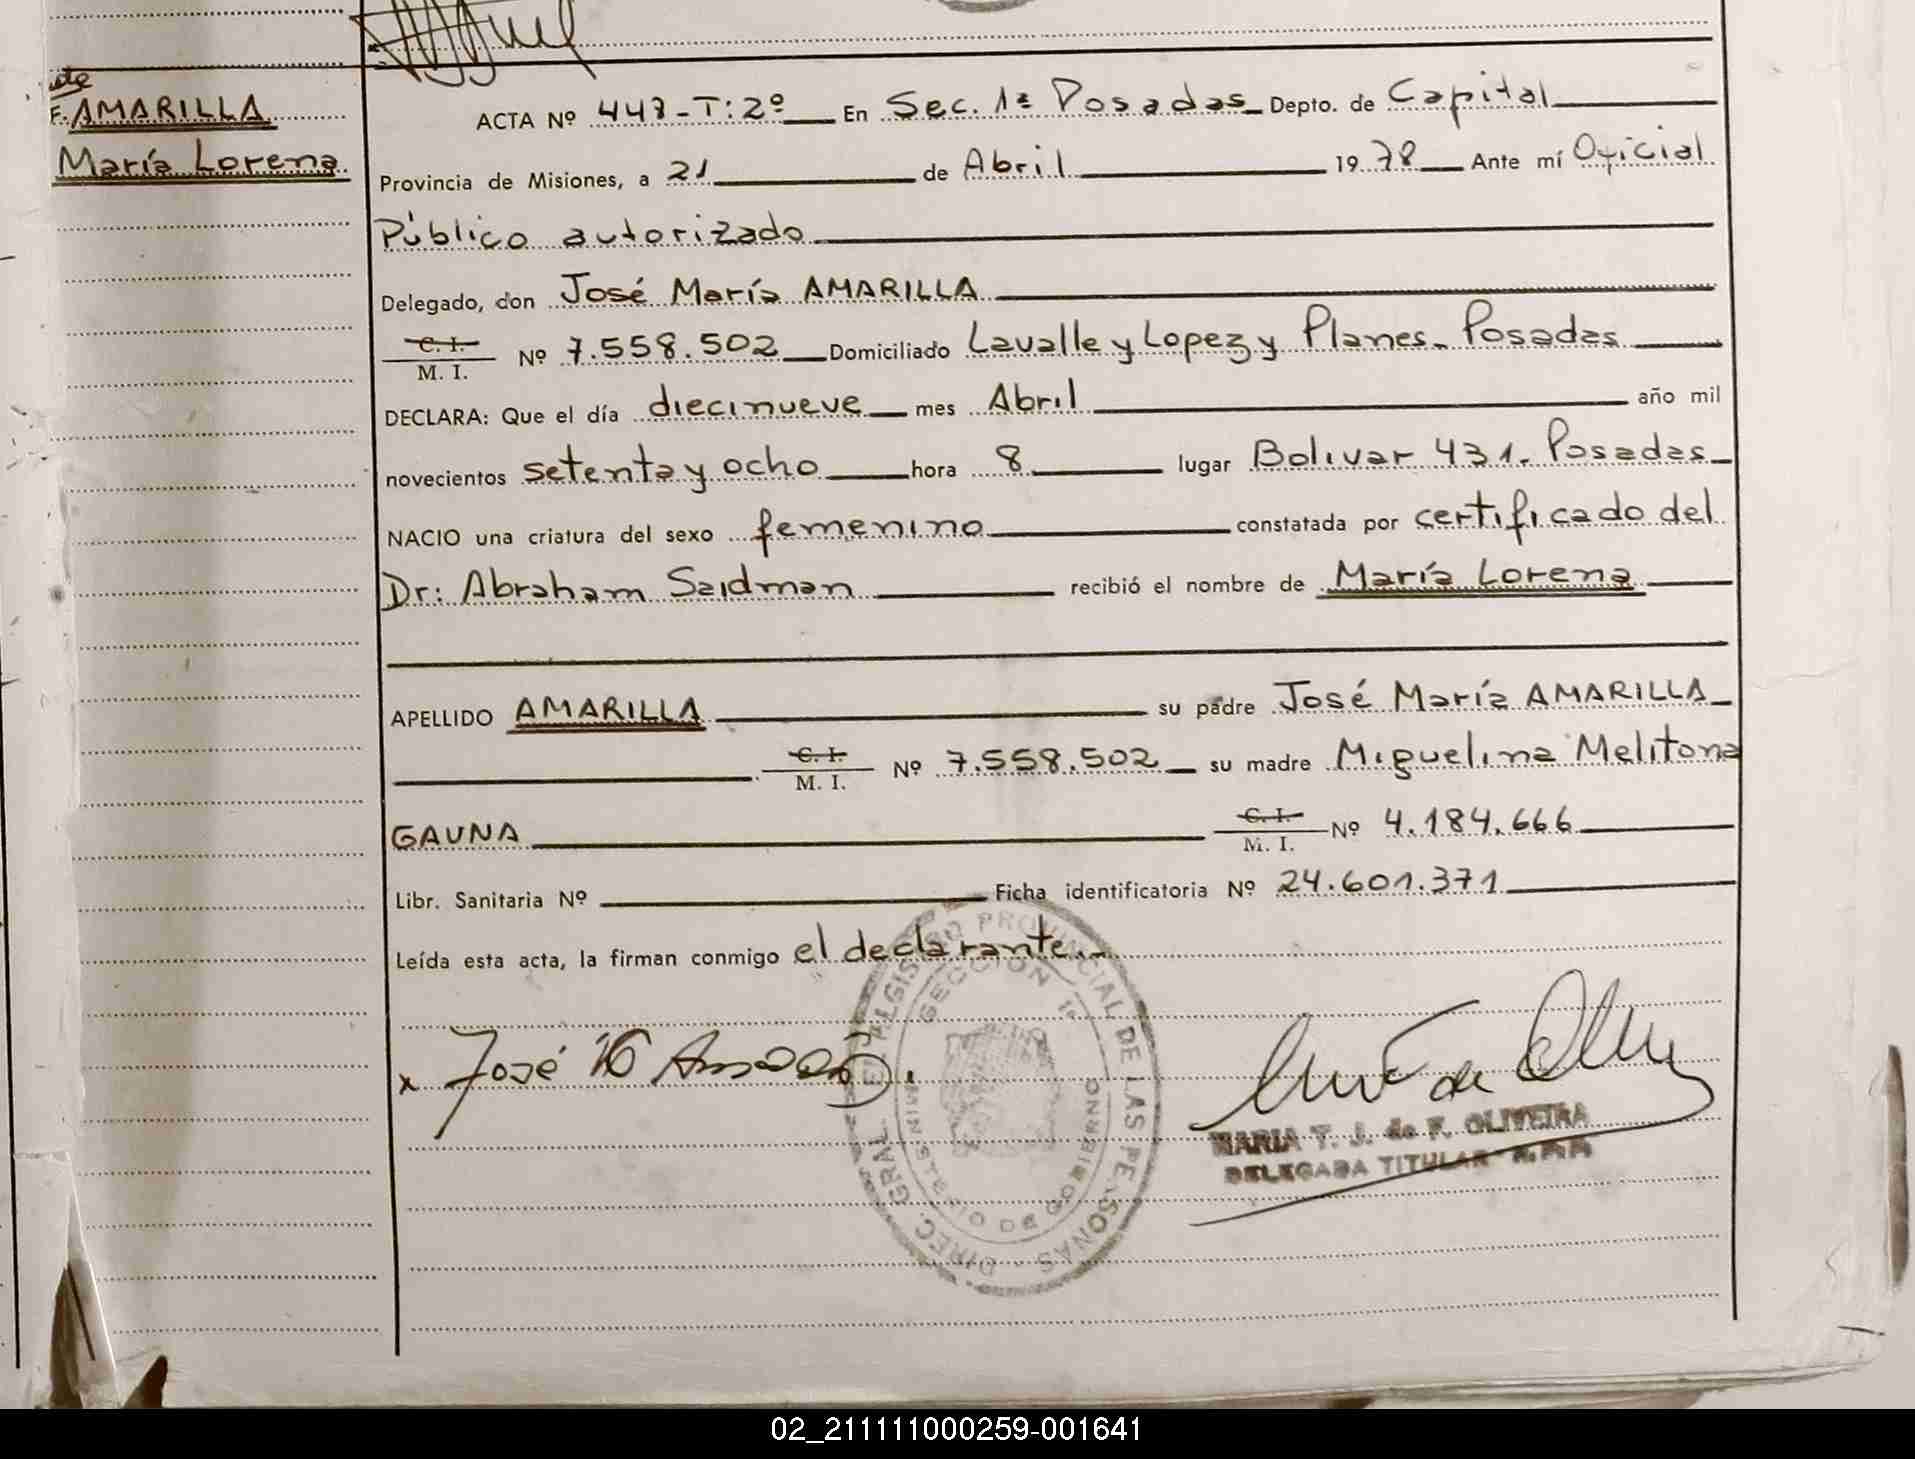 F. AMARILLA
María Lorena
ACTA Nº 448-T:2º En Sec. 1ª Posadas Depto. de Capital
Provincia de Misiones, a 21 de Abril 1978 Ante mí Oficial
Público autorizado
Delegado, don José María AMARILLA
C. I. / M. I. Nº 7.558.502 Domiciliado Lavalle y Lopez y Planes - Posadas
DECLARA: Que el día diecinueve mes Abril año mil
novecientos setenta y ocho hora 8 lugar Bolivar 431. Posadas
NACIO una criatura del sexo femenino constatada por certificado del
Dr: Abraham Saidman recibió el nombre de María Lorena
APELLIDO AMARILLA su padre José María AMARILLA
C. I. / M. I. Nº 7.558.502 su madre Miguelina Melitona
GAUNA C. I. / M. I. Nº 4.184.666
Libr. Sanitaria Nº Ficha identificatoria Nº 24.601.371
Leída esta acta, la firman conmigo el declarante.-
x José M Amarilla
DIREC. GRAL. DE REGISTRO PROVINCIAL DE LAS PERSONAS
SECCION 1ª
MINISTERIO DE GOBIERNO
MARIA T. J. de F. OLIVEIRA
DELEGADA TITULAR R.P.P.
02_211111000259-001641